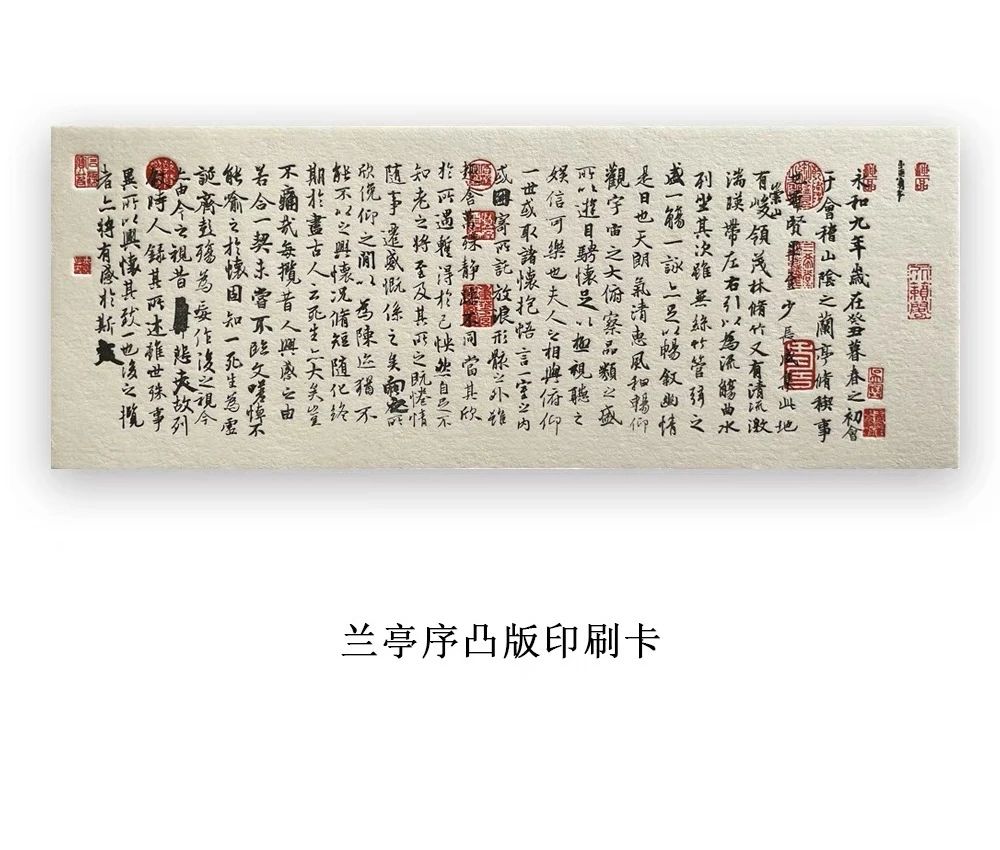 永和九年歲在癸丑暮春之初會
于會稽山陰之蘭亭脩稧事
也羣賢畢至少長咸集此地
有崇山峻領茂林脩竹又有清流激
湍暎帶左右引以為流觴曲水
列坐其次雖無絲竹管弦之
盛一觴一詠亦足以暢敘幽情
是日也天朗氣清惠風和暢仰
觀宇宙之大俯察品類之盛
所以遊目騁懷足以極視聽之
娛信可樂也夫人之相與俯仰
一世或取諸懷抱悟言一室之內
或因寄所託放浪形骸之外雖
趣舍萬殊靜躁不同當其欣
於所遇暫得於己怏然自足不
知老之將至及其所之既惓情
隨事遷感慨係之矣向之所
欣俛仰之間以為陳迹猶不
能不以之興懷況脩短隨化終
期於盡古人云死生亦大矣豈
不痛哉每攬昔人興感之由
若合一契未嘗不臨文嗟悼不
能喻之於懷固知一死生為虛
誕齊彭殤為妄作後之視今
亦由今之視昔悲夫故列
敘時人錄其所述雖世殊事
異所以興懷其致一也後之攬
者亦將有感於斯文
兰亭序凸版印刷卡